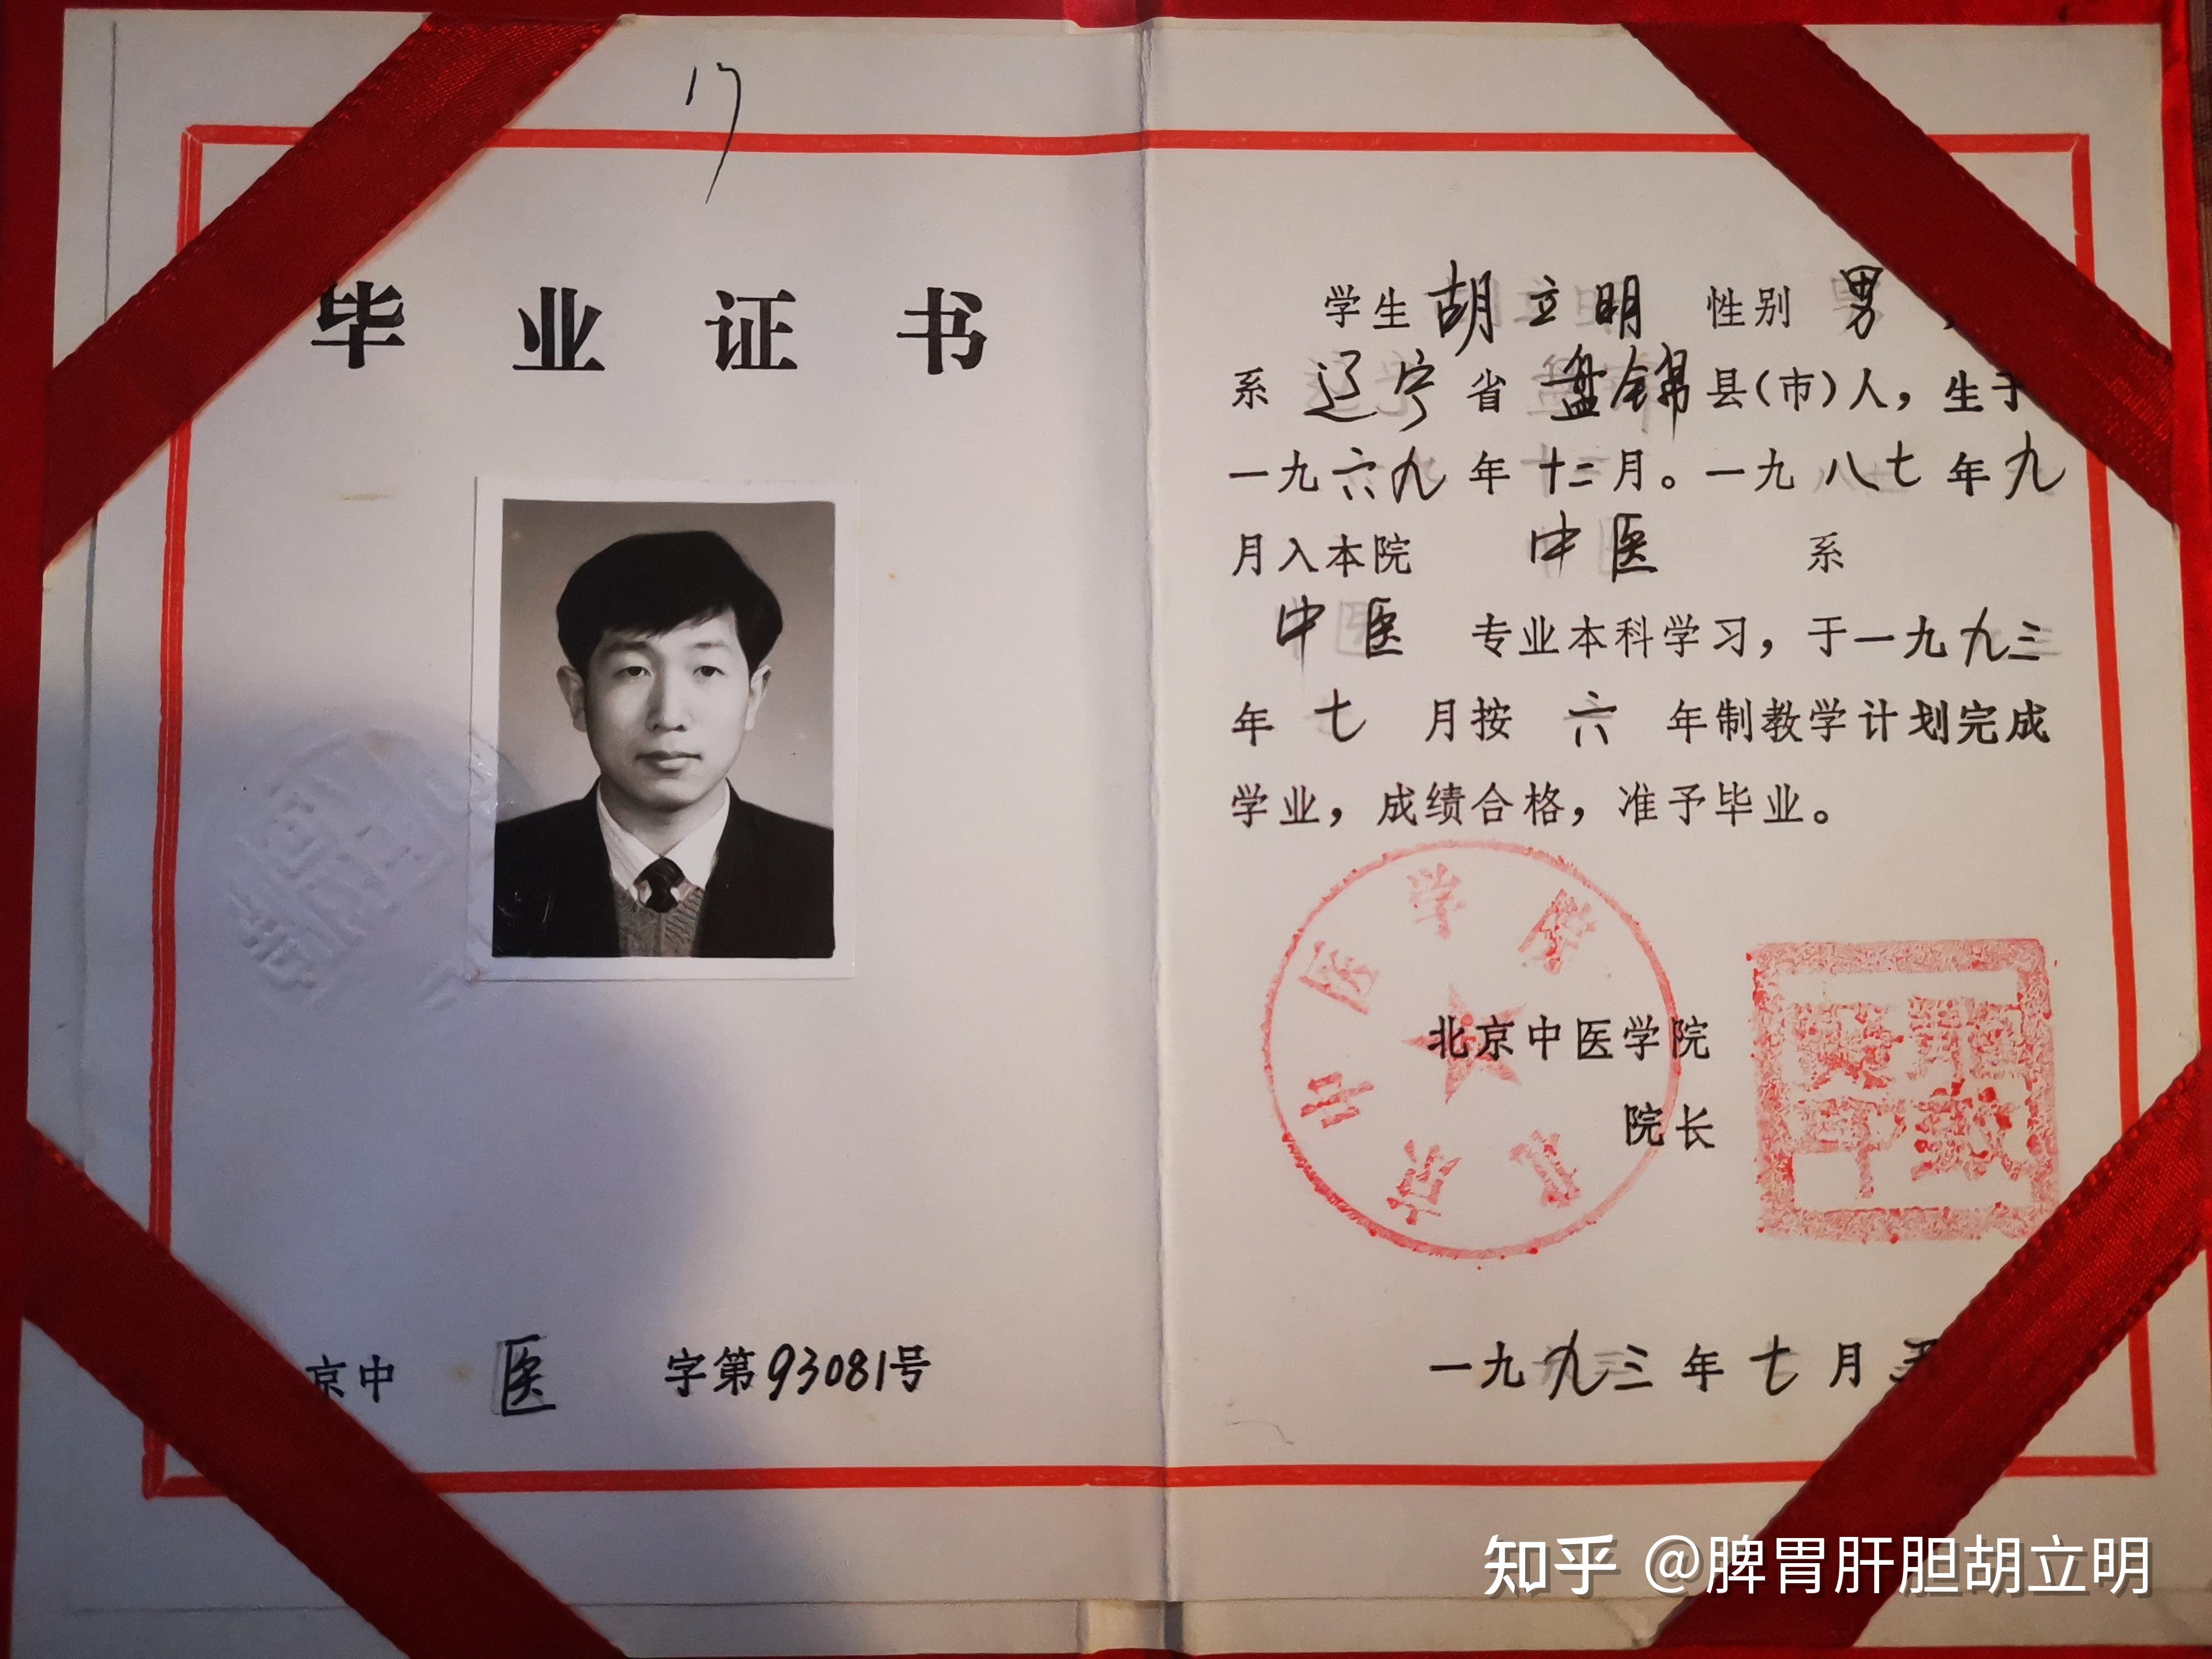 17
毕业证书
京中 医 字第93081号
学生 胡立明 性别 男，
系 辽宁 省 盘锦 县(市)人，生于
一九六九年十二月。一九八七年九
月入本院 中医 系
中医 专业本科学习，于一九九三
年 七 月按 六 年制教学计划完成
学业，成绩合格，准予毕业。
北京中医学院
北京中医学院
院长
一九九三年七月
知乎 @脾胃肝胆胡立明